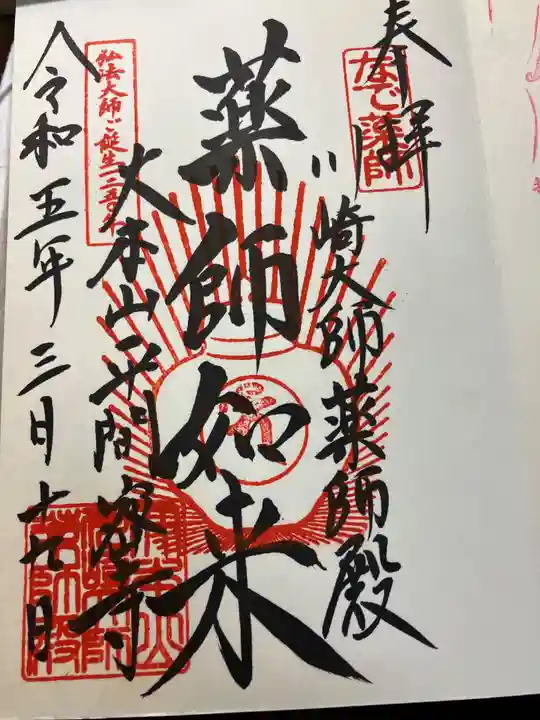 奉拝
なで薬師
川崎大師薬師殿
薬師如来
大本山平間寺
弘法大師ご誕生一二五〇年
令和五年三月十七日